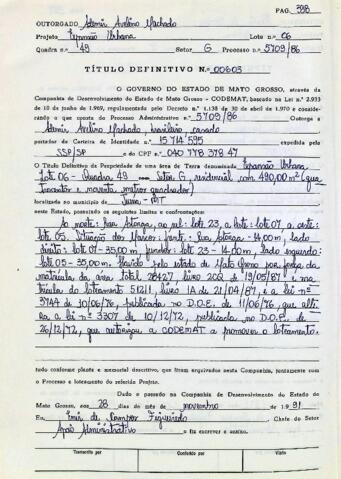 PAG. 398
OUTORGADO Ademir Avelino Machado
Projeto Expansão Urbana Lote n.º 06
Quadra n.º 49 Setor G Processo n.º 5709/86
TÍTULO DEFINITIVO N.º 00603
O GOVERNO DO ESTADO DE MATO GROSSO, através da
Companhia de Desenvolvimento do Estado de Mato Grosso - CODEMAT, baseado na Lei n.º 2.933
de 10 de junho de 1969, regulamentado pelo Decreto n.º 1.138 de 30 de abril de 1970 e considerando
o que consta do Processo Administrativo n.º 5709/86 Outorga a
Ademir Avelino Machado, brasileiro, casado
portador da Carteira de Identidade n.º 15 714 595 expedida pela
SSP/SP e do CPF n.º 040 778 378 47
O Título Definitivo de Propriedade de uma área de Terra denominada Expansão Urbana
Lote 06 - Quadra 49 Setor G, residencial, com 490,00 m² (qua
trocentos e noventa metros quadrados)
localizada no município de Juína - MT
neste Estado, passando os seguintes limites e confrontações:
Ao norte: rua , ao sul: lote 23, a leste: lote 07, a oeste:
lote 05. Situação dos Marcos: frente - Rua - 14,00 m, lado
direito lote 07 - 35,00 m, fundos: lote 23 - 14,00 m, lado esquerdo:
lote 05 - 35,00 m. Havido pelo estado de Mato Grosso por força da
matrícula da área total 28427, livro 20Q de 19/05/87 e ma
trícula do loteamento 51211, livro 1A de 21/04/87, e a lei nº
3744 de 10/06/76, publicada no D.O.E. de 11/06/76, que alte
ra a lei nº 3307 de 10/12/72, publicada no D.O.E. de
26/12/72, que autorizou a CODEMAT a promover o loteamento.
tudo conforme planta e memorial descritivo, que ficam arquivados nesta Companhia, juntamente com
o Processo e loteamento do referido Projeto.
Dado e passado na Companhia de Desenvolvimento do Estado de
Mato Grosso, aos 28 dias do mês de novembro de 1991
Eu, de Campos Figueiredo Chefe do Setor
Apoio Administrativo o fiz escrever e assino.
Transcrito por Conferido por Visto